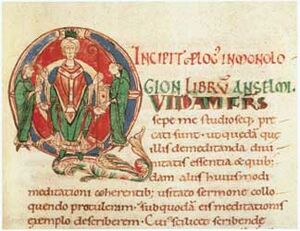 INCIPIT PLOG' IN MONOLO
GION LIBRŨ ANSELMI.
VIDAM FRS
sepe me studioseq; pre
cati sunt. ut quędā que
illis de meditanda divi
nitatis essentia & quibus
dam aliis huiusmodi
meditationi coherentib; usitato sermone collo
quendo protuleram. sub quodā eis meditationis
exemplo describerem. Cui' scilicet scribende